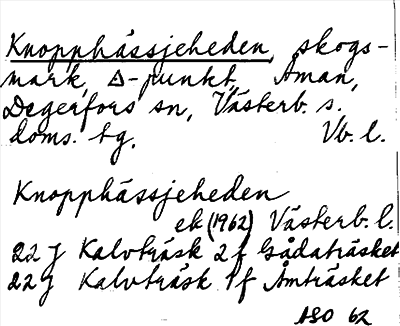 Knopphässjeheden, skogs-
mark, Δ-punkt, Åman,
Degerfors sn, Västerb. s.
doms. tg. Vb. l.
Knopphässjeheden
ek (1962) Västerb. l.
22 J Kalvträsk 2 f Gådaträsket
22 J Kalvträsk 1 f Åmträsket
ASO 62